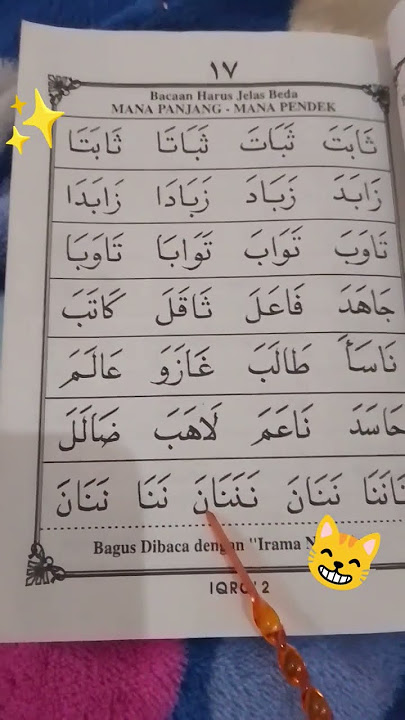 ١٧
Bacaan Harus Jelas Beda
MANA PANJANG - MANA PENDEK
ثَابَتَ ثَبَاتَ ثَبَاتَا ثَابَتَا
زَابَدَ زَبَادَ زَبَادَا زَابَدَا
تَاوَبَ تَوَابَ تَوَابَا تَاوَبَا
جَاهَدَ فَاعَلَ ثَاقَلَ كَاتَبَ
نَاسَأَ طَالَبَ غَازَوَ عَالَمَ
حَاسَدَ نَاعَمَ لَاهَبَ ضَالَلَ
نَنَانَ نَنَنَانَ نَنَا نَنَانَ
Bagus Dibaca dengan "Irama
IQRO' 2